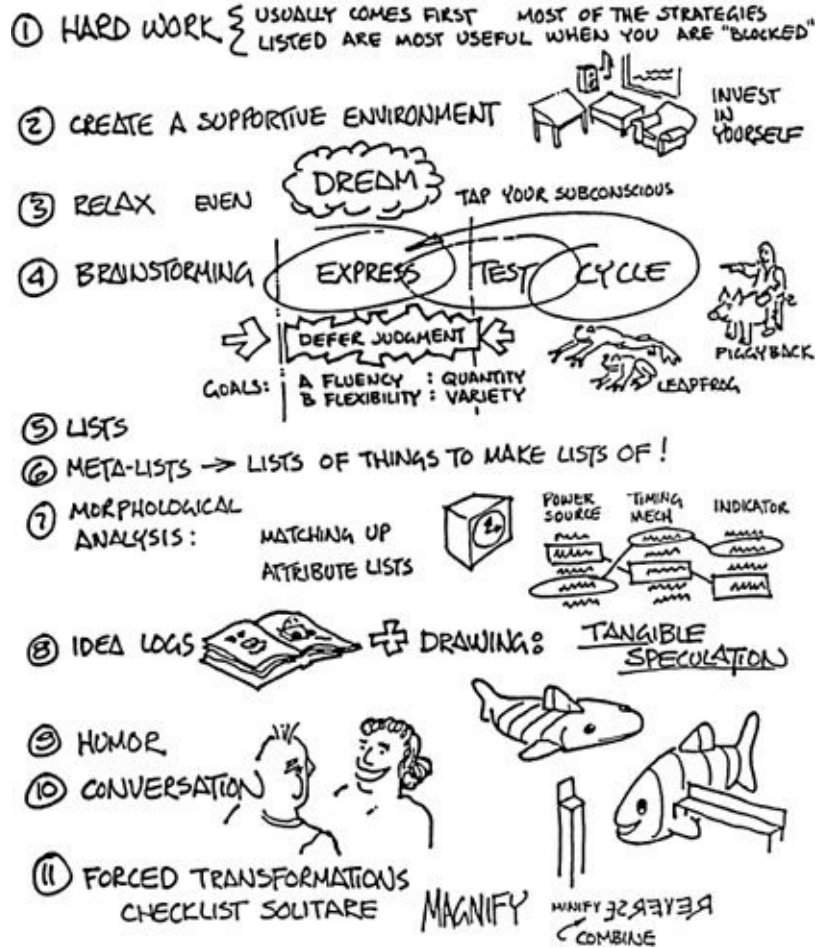 ① HARD WORK { USUALLY COMES FIRST MOST OF THE STRATEGIES
LISTED ARE MOST USEFUL WHEN YOU ARE "BLOCKED"
② CREATE A SUPPORTIVE ENVIRONMENT
INVEST
IN
YOURSELF
③ RELAX EVEN DREAM TAP YOUR SUBCONSCIOUS
④ BRAINSTORMING EXPRESS TEST CYCLE
DEFER JUDGMENT
PIGGYBACK
LEAPFROG
GOALS: A FLUENCY : QUANTITY
B FLEXIBILITY : VARIETY
⑤ LISTS
⑥ META-LISTS → LISTS OF THINGS TO MAKE LISTS OF!
⑦ MORPHOLOGICAL
ANALYSIS: MATCHING UP
ATTRIBUTE LISTS
POWER
SOURCE
TIMING
MECH
INDICATOR
⑧ IDEA LOGS + DRAWING: TANGIBLE
SPECULATION
⑨ HUMOR
⑩ CONVERSATION
⑪ FORCED TRANSFORMATIONS
CHECKLIST SOLITARE MAGNIFY MINIFY REVERSE
COMBINE